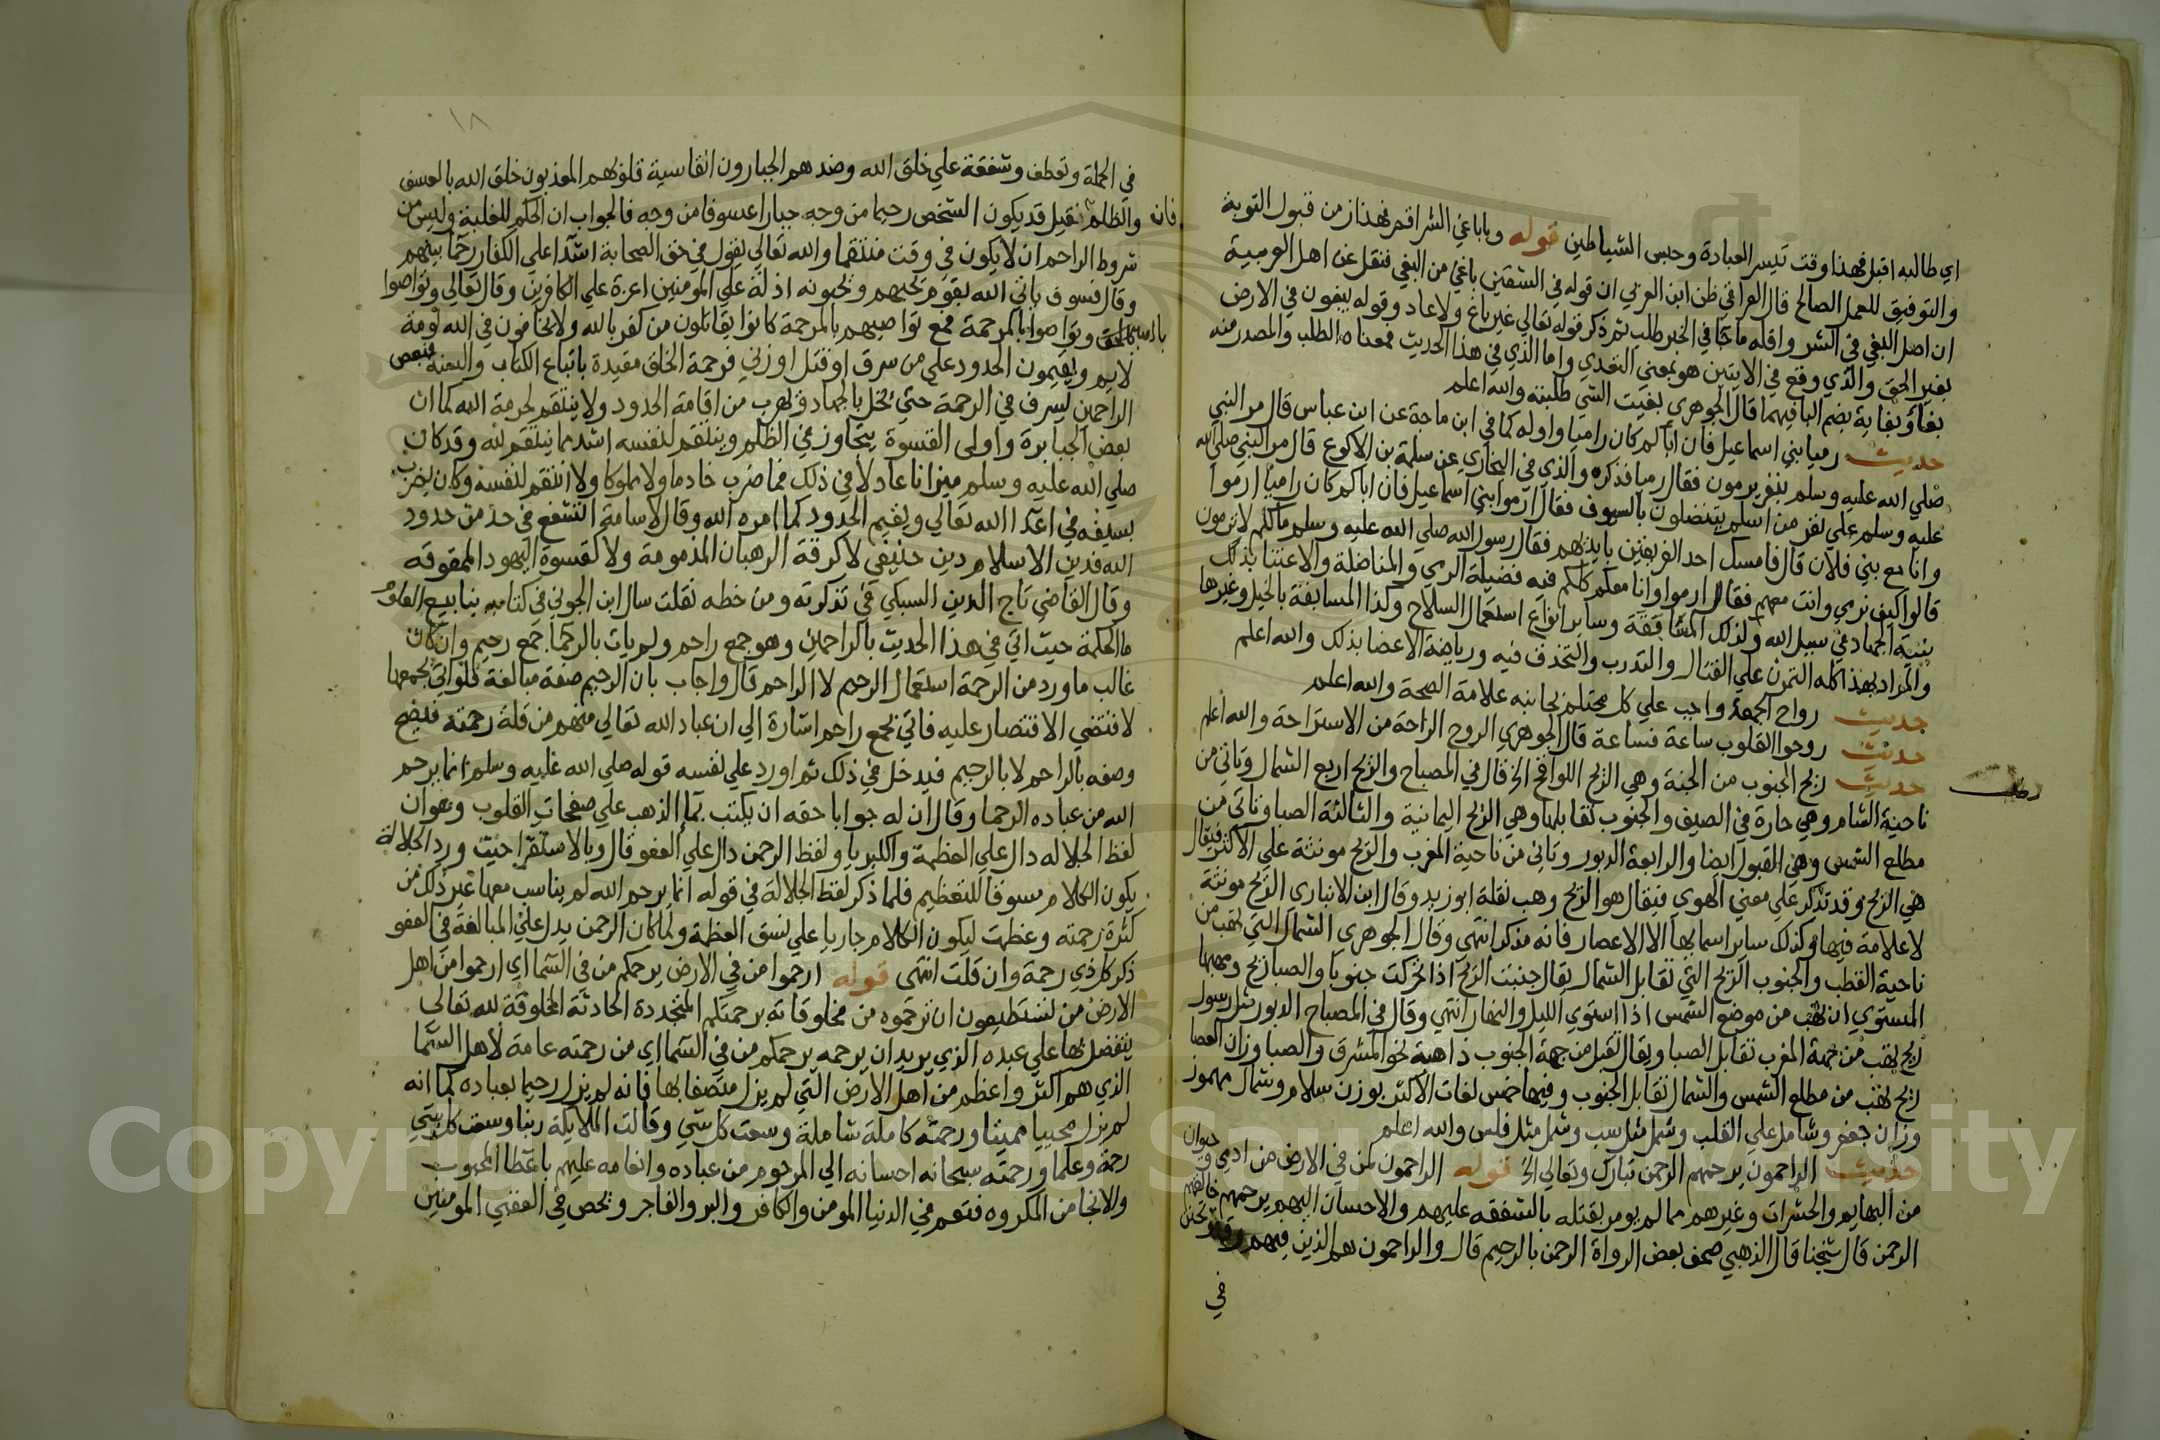 اي طالبه اقبل فهذا وقت تيسر العبادة وحبس الشياطين قوله ويا باغي الشر اقصر فهذا زمن قبول التوبة
والتوفيق للعمل الصالح قال العراقي ظن ابن العربي ان قوله في الشقين باغي من البغي فنقل عن اهل العربية
ان اصل البغي في الشر واقله ما جا في الخير طلب ثم ذكر قوله تعالي غير باغ ولا عاد وقوله يبغون في الارض
بغير الحق والذي وقع في الايتين هو بمعني التعدي واما الذي في هذا الحديث فمعناه الطلب والمصدر منه
بغاؤ بغاية بضم البا فيهما قال الجوهري بغيت الشي طلبته والله اعلم
حديث رميا بني اسماعيل فان اباكم كان راميا واوله كما في ابن ماجة عن ابن عباس قال مر النبي
صلي الله عليه وسلم بنفر يرمون فقال رميا فذكره والذي في البخاري عن سلمة بن الاكوع قال مر النبي صلي الله
عليه وسلم علي نفر من اسلم يتنضلون بالسيوف فقال ارموا بني اسماعيل فان اباكم كان راميا ارموا
وانا مع بني فلان قال فامسك احد الفريقين بايديهم فقال رسول الله صلي الله عليه وسلم مالكم لا ترمون
قالوا كيف نرمي وانت معهم فقال ارموا وانا معكم كلكم فيه فضيلة الرمي والمناضلة والاعتنا بذلك
بنية الجهاد في سبيل الله وكذلك المثاقفة وساير انواع استعمال السلاح وكذا المسابقة بالخيل وغيرها
والمراد بهذا كله التمرن علي القتال والتدرب والتحذق فيه ورياضة الاعضا بذلك والله اعلم
حديث رواح الجمعة واجب علي كل محتلم بجانبه علامة الصحة والله اعلم
حديث روحوا القلوب ساعة فساعة قال الجوهري الروح الراحة من الاستراحة والله اعلم
حديث ريح الجنوب من الجنة وهي الريح اللواقح الخ قال في المصباح والريح اربع الشمال وتاتي من
ناحية الشام وهي حارة في الصيف والجنوب تقابلها وهي الريح اليمانية والثالثة الصبا وتاتي من
مطلع الشمس وهي القبول ايضا والرابعة الدبور وتاتي من ناحية المغرب والريح مونثة علي الاكثر فيقال
هي الريح وقد تذكر علي معني الهوي فيقال هو الريح وهب نقله ابو زيد وقال ابن الانباري الريح مونثة
لا علامة فيها وكذلك ساير اسمايها الا الاعصار فانه مذكر انتهي وقال الجوهري الشمال التي تهب من
ناحية القطب والجنوب الريح التي تقابل الشمال يقال جنبت الريح اذا تحركت جنوبا والصبا ريح ومهبها
المستوي ان تهب من موضع الشمس اذا استوي الليل والنهار انتهي وقال في المصباح الدبور مثل رسول
ريح تهب من جهة المغرب تقابل الصبا ويقال تقبل من جهة الجنوب ذاهبة نحو المشرق والصبا وزان العصا
ريح تهب من مطلع الشمس والشمال تقابل الجنوب وفيها خمس لغات الاكثر بوزن سلام وشمال مهموز
وزان جعفر وشامل علي القلب وشمل مثل سبب وشمل مثل فلس والله اعلم
حديث الراحمون يرحمهم الرحمن تبارك وتعالي الخ قوله الراحمون لمن في الارض من ادمي وحيوان
من البهايم والحشرات وغيرهم مما لم يومر بقتله بالشفقة عليهم والاحسان اليهم يرحمهم خالقهم
الرحمن قال شيخنا قال الذهبي صحف بعض الرواة الرحمن بالرحيم قال والراحمون هم الذين فيهم
في
١٨
في الجملة وتعطف وشفقة علي خلق الله وضدهم الجبارون القاسية قلوبهم المعذبون خلق الله بالعسف
والظلم فان نقيل قد يكون الشخص رحيما من وجه جبارا عسوفا من وجه فالجواب ان الحكم للغلبة وليس من
شروط الراحم ان لا يكون في وقت منتقما والله تعالي يقول في حق الصحابة اشدا علي الكفار رحما بينهم
وقال فسوف ياتي الله بقوم يحبهم ويحبونه اذلة علي المومنين اعزة علي الكافرين وقال تعالي وتواصوا
وتواصوا بالمرحمة فمع تواصيهم بالمرحمة كانوا يقاتلون من كفر بالله ولا يخافون في الله لومة
لايم ويقيمون الحدود علي من سرق او قتل او زني فرحمة الخلق مقيدة باتباع الكتاب والسنة فبعض
الراحمين يسرف في الرحمة حتي يخل بالجهاد ويهرب من اقامة الحدود ولا ينتقم لحرمة الله كما ان
بعض الجبابرة واولي القسوة يتجاوز في الظلم وينتقم لنفسه اشد مما ينتقم لله وقد كان
صلي الله عليه وسلم ميزانا عادلا في ذلك فما ضرب خادما ولا مملوكا ولا انتقم لنفسه وكان يضرب
بسيفه في اعدا الله تعالي ويقيم الحدود كما امره الله وقال لاسامة اتشفع في حد من حدود
الله فدين الاسلام دين حنيفي لا كرقة الرهبان المذمومة ولا كقسوة اليهود الممقوتة
وقال القاضي تاج الدين السبكي في تذكرته ومن خطه نقلت سال ابن الجوني في كتابه ينابيع العلوم
ما الحكمة حيث اتي في هذا الحديث بالراحمين وهو جمع راحم ولم يات بالرحما جمع رحيم وان كان
غالب ما ورد من الرحمة استعمال الرحيم لا الراحم قال واجاب بان الرحيم صفة مبالغة فلو اتي بجمعها
لاقتضي الاقتصار عليه فاتي بجمع راحم اشارة الي ان عباد الله تعالي منهم من قلة رحمته فيصح
وصفه بالراحم لا بالرحيم فيدخل في ذلك ثم اورد علي نفسه قوله صلي الله عليه وسلم انما يرحم
الله من عباده الرحما وقال ان له جوابا حقه ان يكتب بما الذهب علي صفحات القلوب وهو ان
لفظ الجلاله دال علي العظمة والكبريا ولفظ الرحمن دال علي العفو قال وبالاستقرا حيث ورد الجلالة
يكون الكلام مسوقا للتعظيم فلما ذكر لفظ الجلالة في قوله انما يرحم الله لم يناسب معها غير ذلك من
كثرة رحمته وعظمت ليكون الكلام جاريا علي نسق العظمة ولما كان الرحمن يدل علي المبالغة في العفو
ذكر كل ذي رحمة وان قلت انتهي قوله ارحموا من في الارض يرحمكم من في السما اي ارحموا من اهل
الارض من تستطيعون ان ترحموه من مخلوقاته برحمتكم المتجددة الحادثة المخلوقة لله تعالي
يتفضل بها علي عبده الذي يريد ان يرحمه يرحمكم من في السما اي من رحمته عامة لاهل السما
الذي هم اكثر واعظم من اهل الارض التي لم يزل متصفا بها فانه لم يزل رحيما بعباده كما انه
لم يزل محييا مميتا ورحمته كاملة شاملة وسعت كل شي وقالت الملايكة ربنا وسعت كل شي
رحمة وعلما ورحمته سبحانه احسانه الي المرحوم من عباده وانعامه عليهم باعطا المحبوب
والانجا من المكروه فتعم في الدنيا المومن والكافر والبر والفاجر وتخص في العقبي المومنين